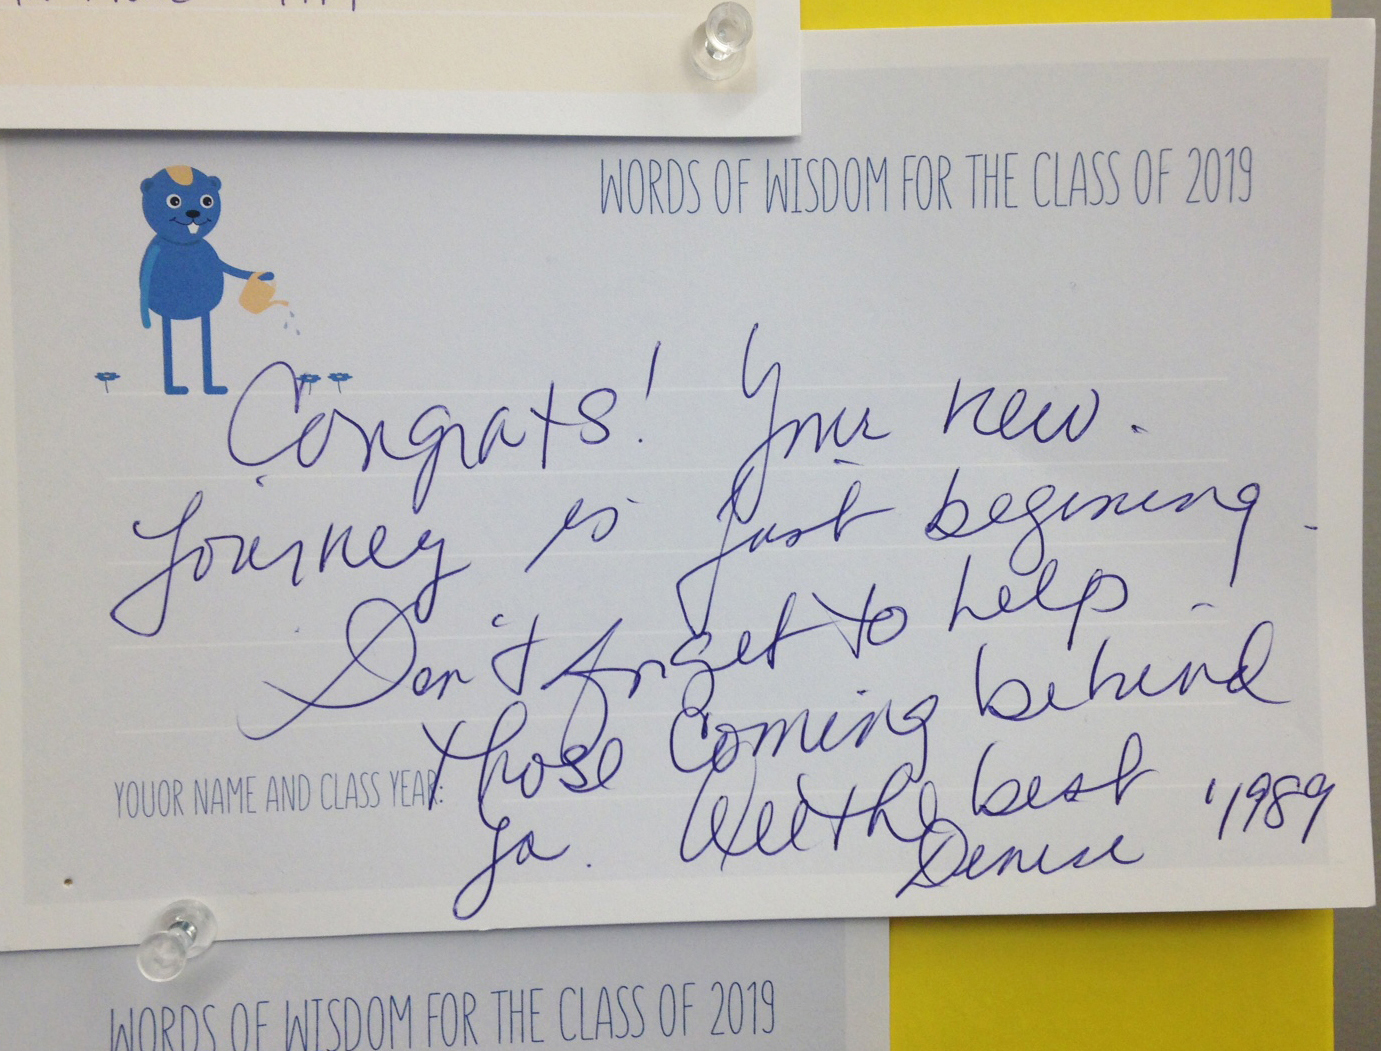 WORDS OF WISDOM FOR THE CLASS OF 2019
Congrats! Your new
journey is just begining.
Don't forget to help
those coming behind
ya. All the best
Denise '1989
YOUOR NAME AND CLASS YEAR:
WORDS OF WISDOM FOR THE CLASS OF 2019